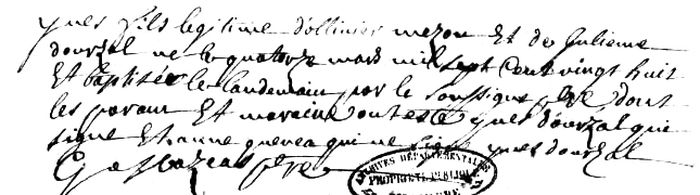 yves fils legitime d'ollivier mezou Et de Julienne
dourzal ne le quatorze mars mil sept cent vingt huit
Et baptisée le landemain par le soussigné pbre dont
les parain Et maraine ont esté yves dourzal qui
signe Et anne quenea qui ne signe yves dourzal
pbre
ARCHIVES DÉPARTEMENTALES
PROPRIÉTÉ PUBLIQUE